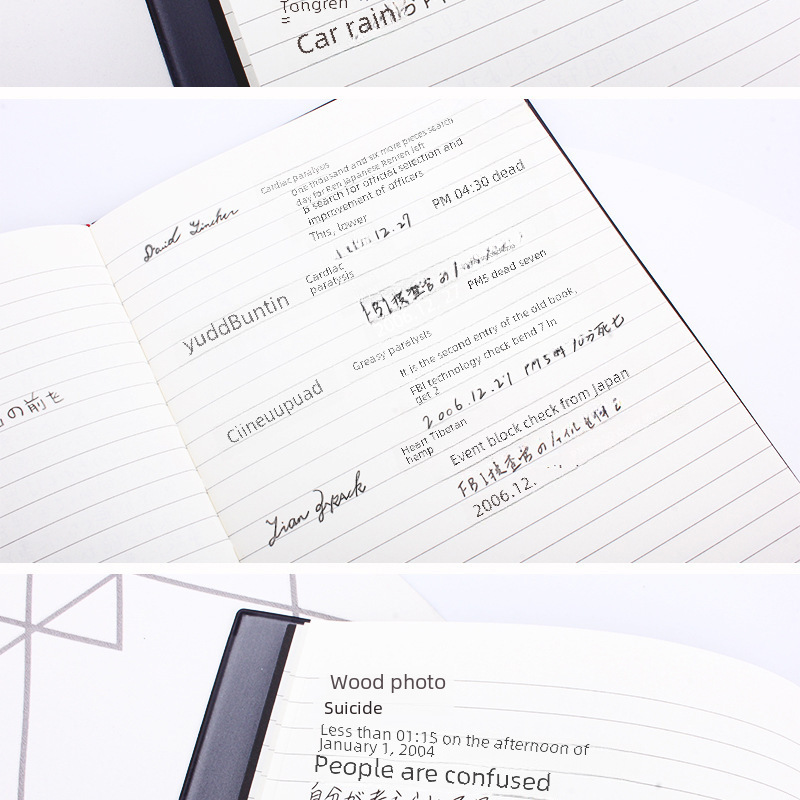 Tongren
=
Car rain
Cardiac paralysis
One thousand and six more pieces search
day for Ren Japanese Renren left
b search for official selection and
improvement of officers
This, lower
PM 04:30 dead
12.27
David
Cardiac
paralysis
yuddBuntin
FBI捜査官の
PM5 dead seven
Greasy paralysis
It is the second entry of the old book,
FBI technology check bend 7 In
get 2
Ciineuupuad
2006.12.27 PM5時 死亡
の前を
Heart Tibetan
hemp
Event block check from Japan
FBI捜査官の
2006.12.
Wood photo
Suicide
Less than 01:15 on the afternoon of
January 1, 2004
People are confused
自分が考え